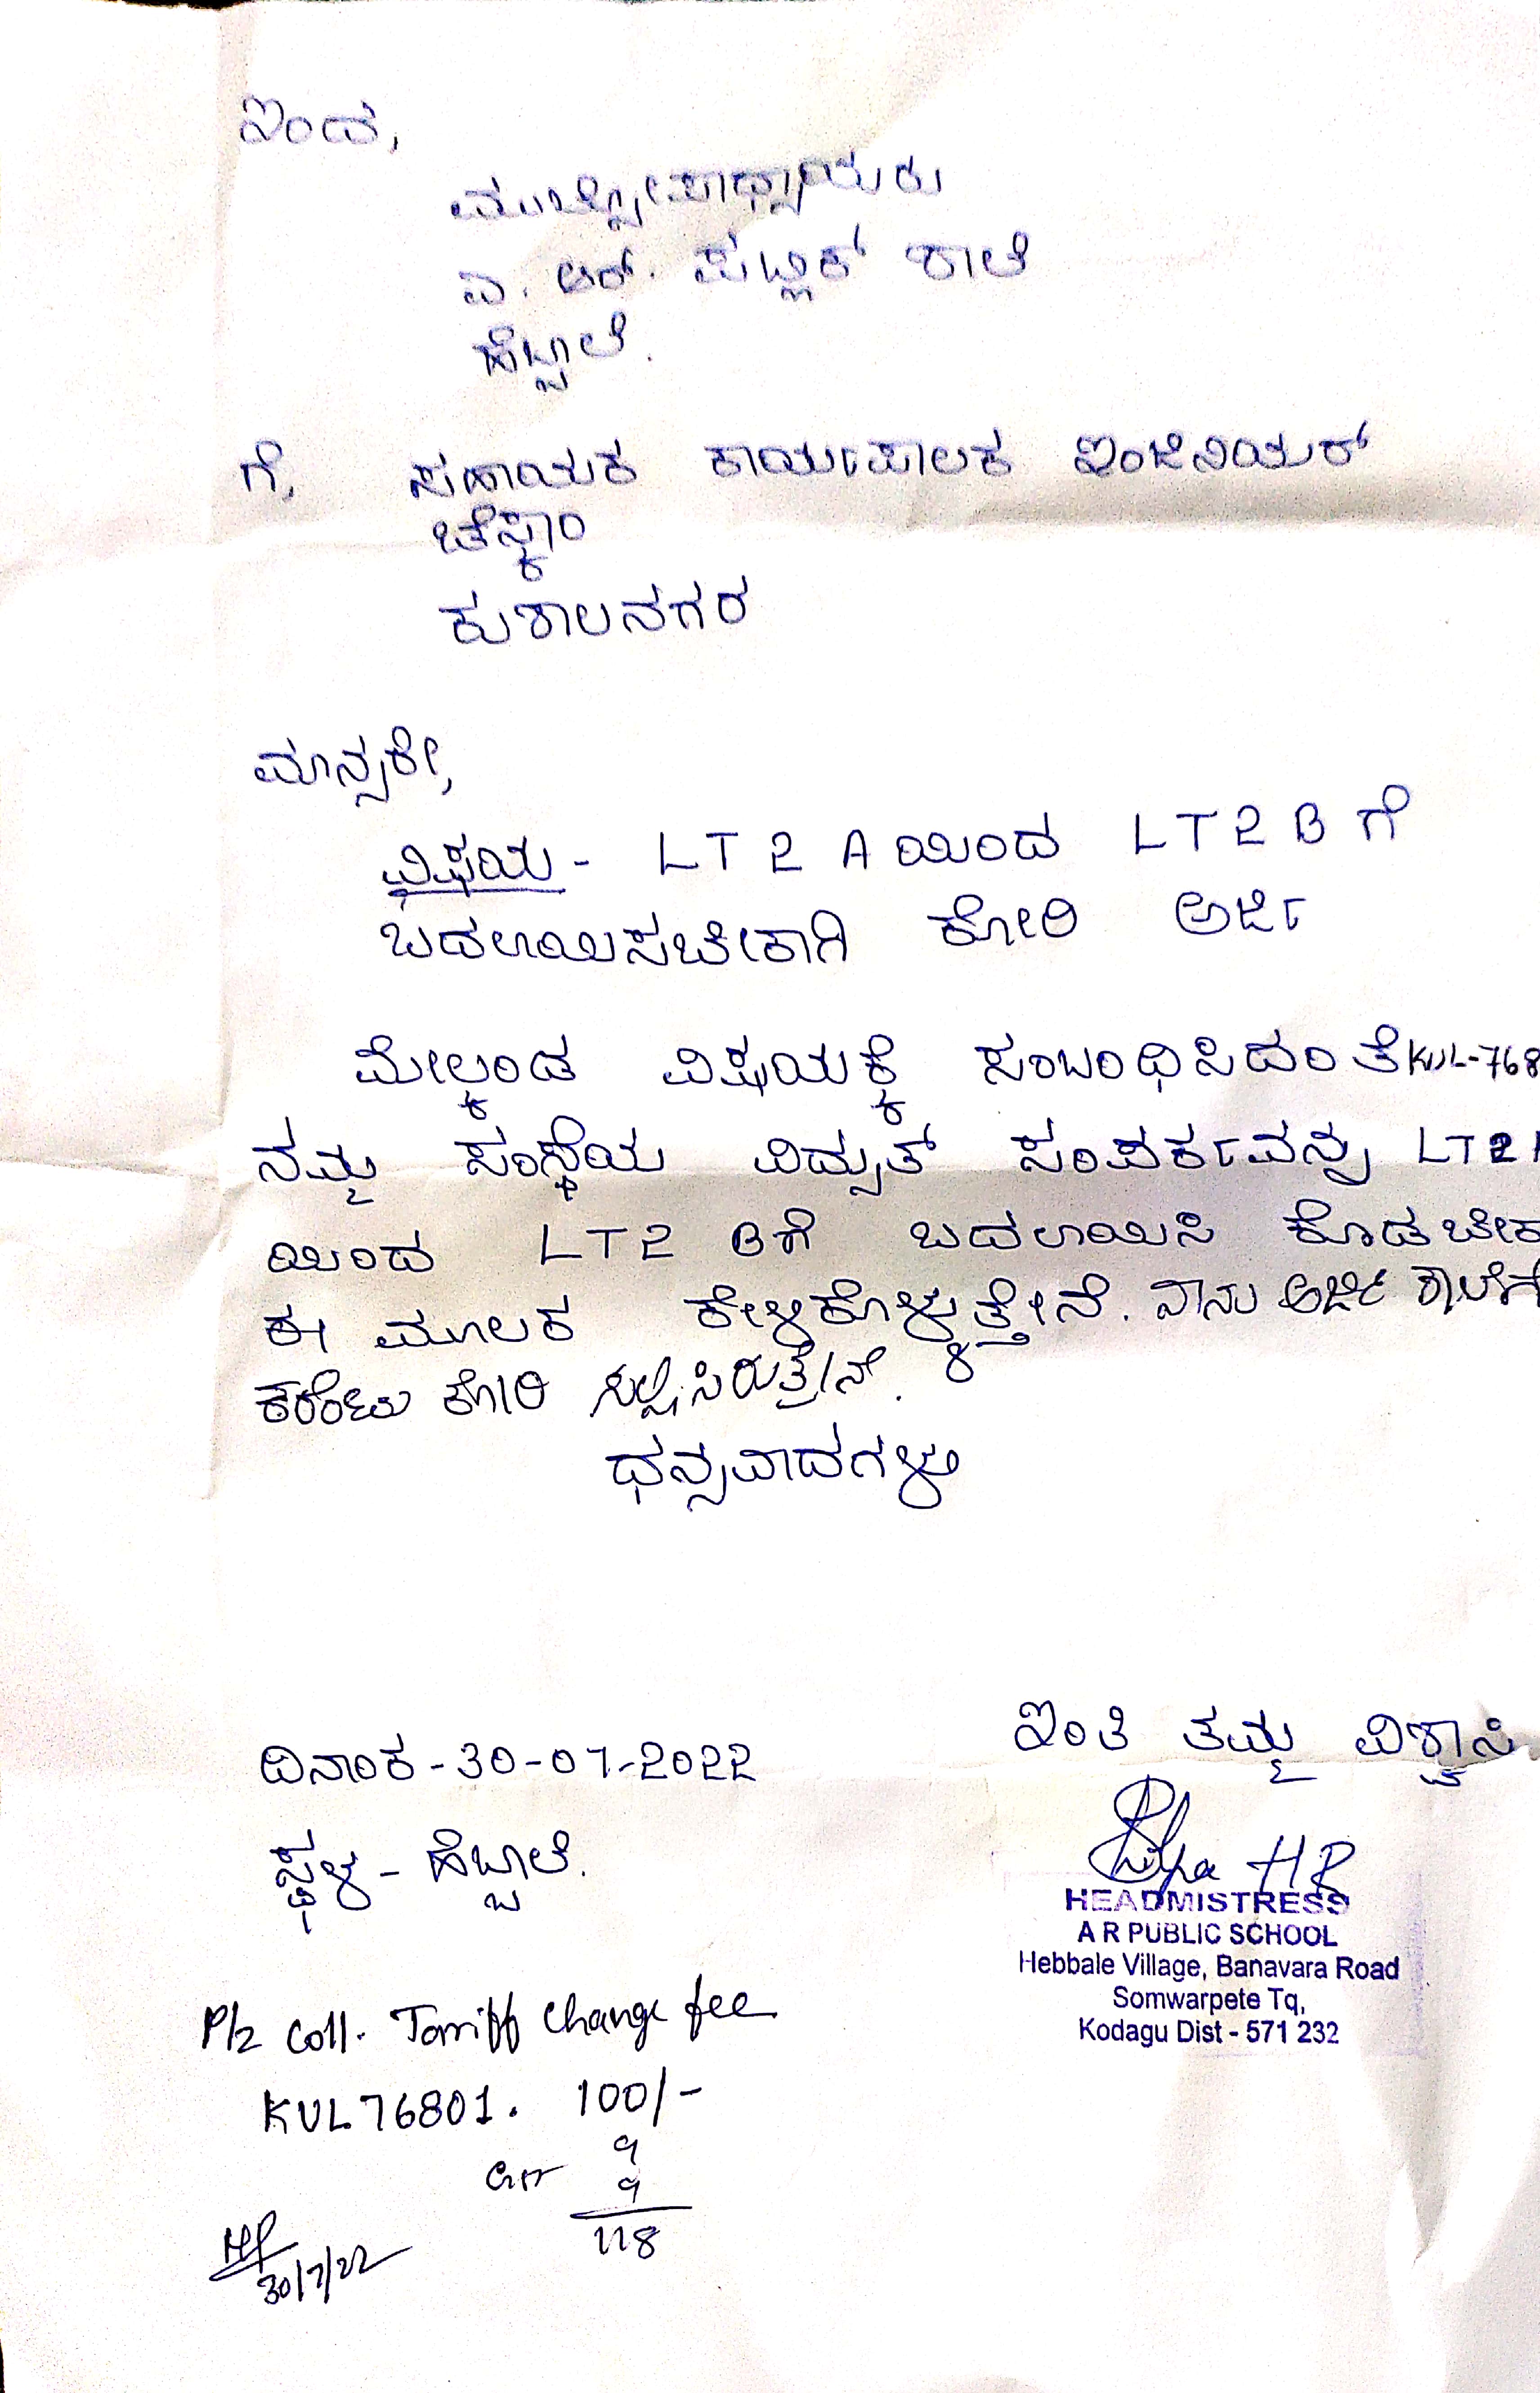 ಇಂದ,
ಮುಖ್ಯೋಪಾಧ್ಯಾಯರು
ಎ. ಆರ್. ಪಬ್ಲಿಕ್ ಶಾಲೆ
ಹೆಬ್ಬಾಲೆ.
ಗೆ, ಸಹಾಯಕ ಕಾರ್ಯಪಾಲಕ ಇಂಜಿನಿಯರ್
ಚೆಸ್ಕಾಂ
ಕುಶಾಲನಗರ
ಮಾನ್ಯರೇ,
ವಿಷಯ - LT 2 A ಯಿಂದ LT 2 B ಗೆ
ಬದಲಾಯಿಸಬೇಕಾಗಿ ಕೋರಿ ಅರ್ಜಿ
ಮೇಲ್ಕಂಡ ವಿಷಯಕ್ಕೆ ಸಂಬಂಧಿಸಿದಂತೆ KUL-768
ನಮ್ಮ ಸಂಸ್ಥೆಯ ವಿದ್ಯುತ್ ಸಂಪರ್ಕವನ್ನು LT2
ಯಿಂದ LT2 Bಗೆ ಬದಲಾಯಿಸಿ ಕೊಡಬೇಕ
ಈ ಮೂಲಕ ಕೇಳಿಕೊಳ್ಳುತ್ತೇನೆ. ನಾನು ಅರ್ಜಿ ಶಾಲೆಗೆ
ಕರೆಂಟು ಕೋರಿ ಸಲ್ಲಿಸಿರುತ್ತೇನೆ.
ಧನ್ಯವಾದಗಳು
ಇಂತಿ ತಮ್ಮ ವಿಶ್ವಾಸಿ
ದಿನಾಂಕ - 30-07-2022
ಸ್ಥಳ - ಹೆಬ್ಬಾಲೆ.
HEADMISTRESS
A R PUBLIC SCHOOL
Hebbale Village, Banavara Road
Somwarpete Tq,
Kodagu Dist - 571 232
Plz coll. Tarriff change fee
KUL76801. 100/-
9
9
118
30/7/22